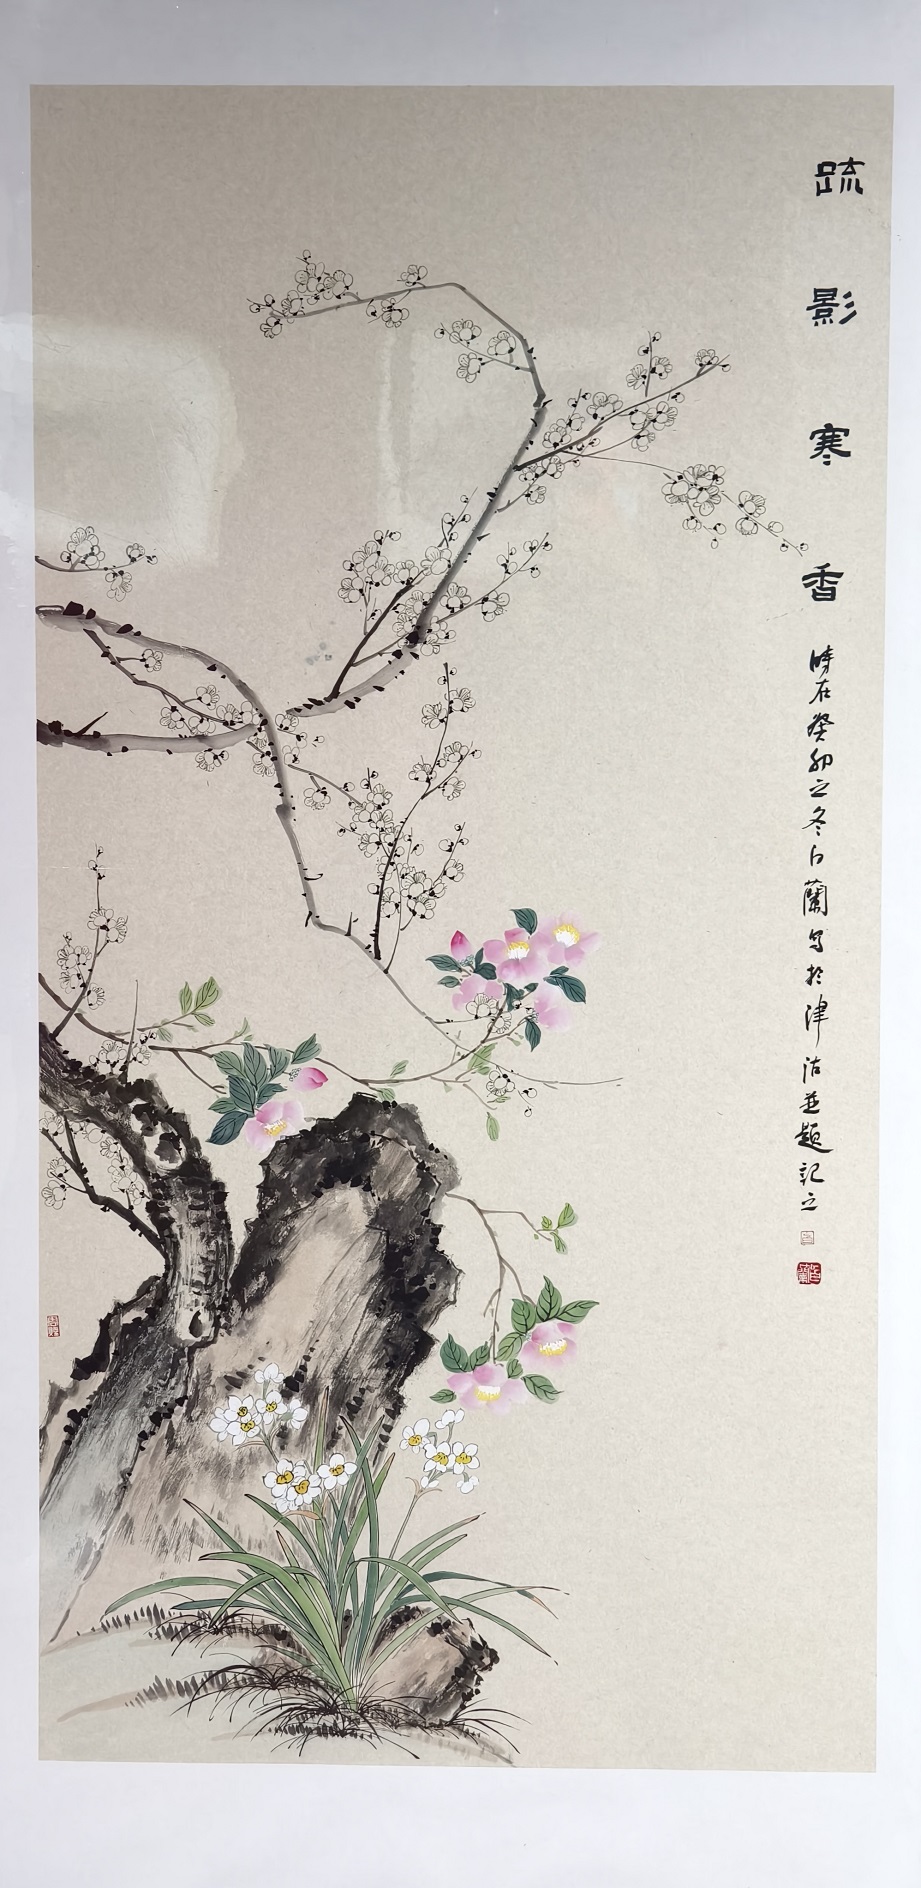 疏影寒香
時在癸卯之冬白蘭写於津沽並題記之